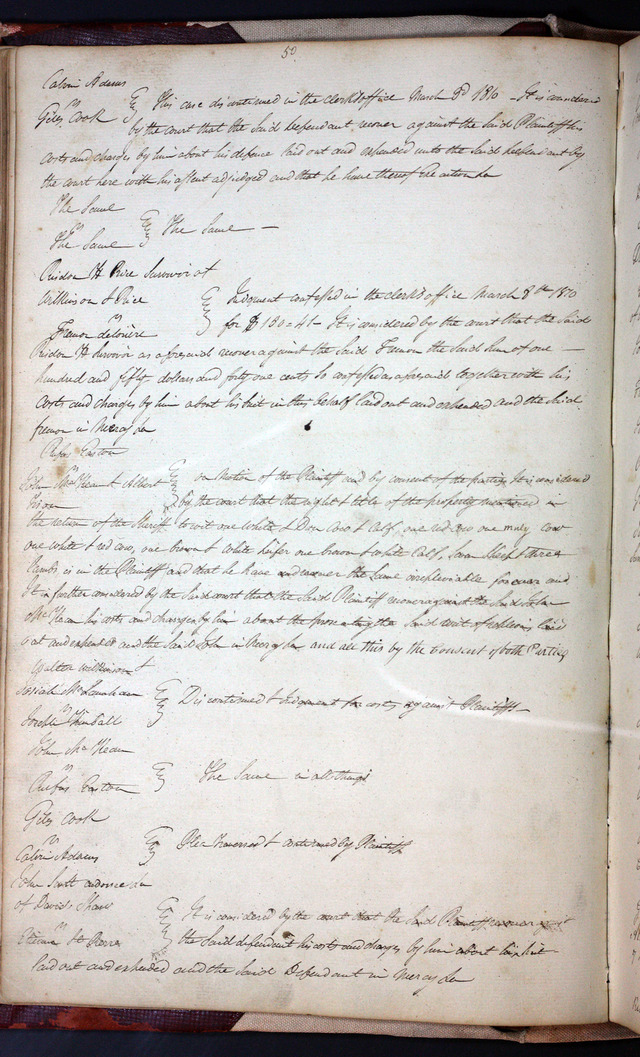 50
Calvin Adams
vs
Giles Cook } This case discontinued in the clerks office March 3d 1810 - It is considered
by the court that the said Defendant recover against the said Plaintiff his
costs and charges by him about his defence laid out and expended unto the said Defendant by
the court here with his assent adjudged and that he have thereof Execution &c
The Same
vs
The Same } The Same —
Risdon H Price Survivor of
Wilkinson & Price } Judgment confessed in the clerks office March 8th 1810
vs
for $ 150 = 41 - It is considered by the court that the Said
Risdon H Survivor as aforesaid recover against the Said the Said Sum of one —
hundred and fifty dollars and forty one cents so confessed as aforesaid together with his
costs and charges by him about his suit in this behalf laid out and expended and the Said
in Mercy &c
Rufus Easton
vs
John McKean & Albert } on Motion of the Plaintiff and by consent of the parties It is considered
Tison } by the court that the right & title of the property mentioned in
the return of the Sheriff to wit one white & Dun Cow & Calf one red cow one muly cow
one white & red cow, one brown & white heifer one brown & white Calf, Seven Sheep & three
Lambs is in the Plaintiff and that he have and recover the same irrepleviable forever and
It is further considered by the Said court that the Said Plaintiff recover against the Said John
McKean his costs and charges by him about the prosecuting the Said writ of replevin laid
out and expended and the Said John in Mercy &c and all this by the Consent of both Parties
Walter Wilkinson &
Josiah McLanahan
vs
Kimball } Discontinued & Judgment for costs against Plaintiffs
John McKean
vs
Rufus Easton } The Same in all things
Giles Cook
vs
Calvin Adams } Plea traversed & continued by Plaintiff
John Scott &c
of David Shaw
vs
Etienne St Pierre } It is considered by the court that the Said Plaintiff recover against
the Said defendant his costs and charges by him about his suit
laid out and expended and the Said Defendant in Mercy &c